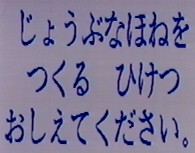 じょうぶなほねを
つくる　ひけつ
おしえてください。